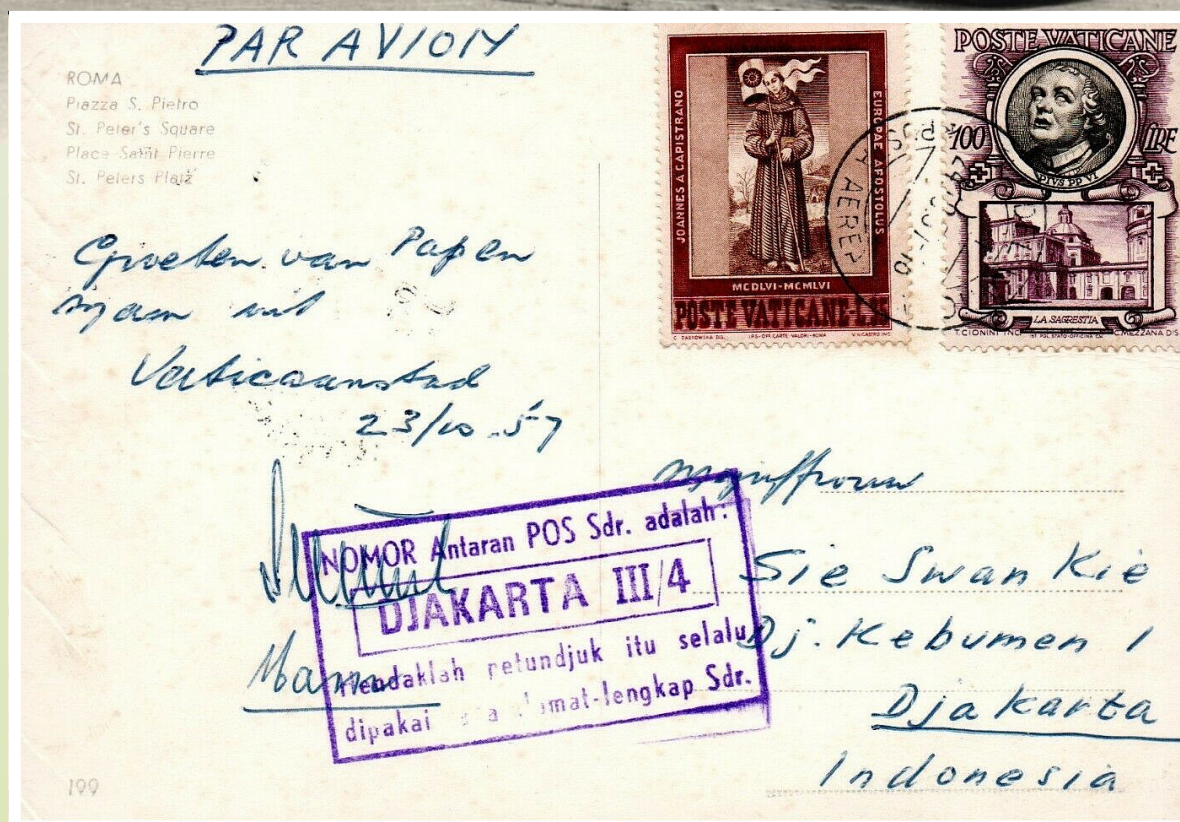 PAR AVION
ROMA
Piazza S. Pietro
St. Peter's Square
Place Saint Pierre
St. Peters Platz
JOANNES A CAPISTRANO
EUROPAE APOSTOLUS
MCDLVI-MCMLVI
POSTE VATICANE-L.
IPS-OFF. CARTE VALORI-ROMA
POSTE VATICANE
100 LIRE
PIVS PP VI
LA SAGRESTIA
T. CIONINI INC.
C. MEZZANA DIS.
POSTA AEREA
Groeten van Papen
uit
Vaticaanstad
23/10.57
Mama
NOMOR Antaran POS Sdr. adalah:
DJAKARTA III/4
Hendaklah petundjuk itu selalu
dipakai alamat-lengkap Sdr.
Mejuffrouw
Sie Swan Kie
Dj. Kebumen 1
Djakarta
Indonesia
199